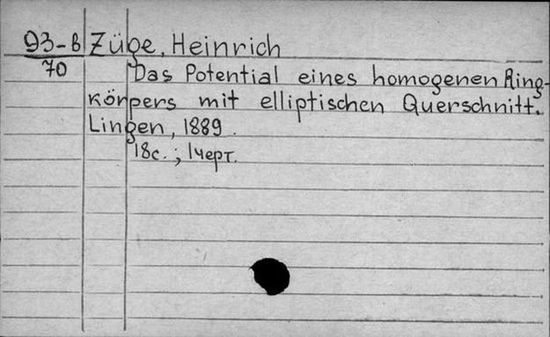 93-B Züge, Heinrich
70 Das Potential eines homogenen Ring-
körpers mit elliptischen Querschnitt.
Lingen, 1889.
18с.; 1черт.